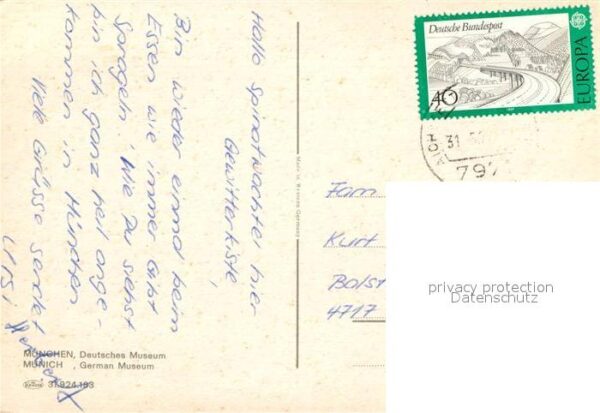 Hallo Spinatwachtel hier
Gewitterkiste,
Bin wieder einmal beim
Essen wie immer gibt
Spargeln. Wie Du siehst
bin ich ganz heil ange-
kommen in München
Viele Grüsse sendet
Deutsche Bundespost
40
EUROPA
31
797
Made in Western Germany
Fam
Kurt
Bolst
4717
privacy protection
Datenschutz
MÜNCHEN, Deutsches Museum
MUNICH , German Museum
Krüger 31.924.183